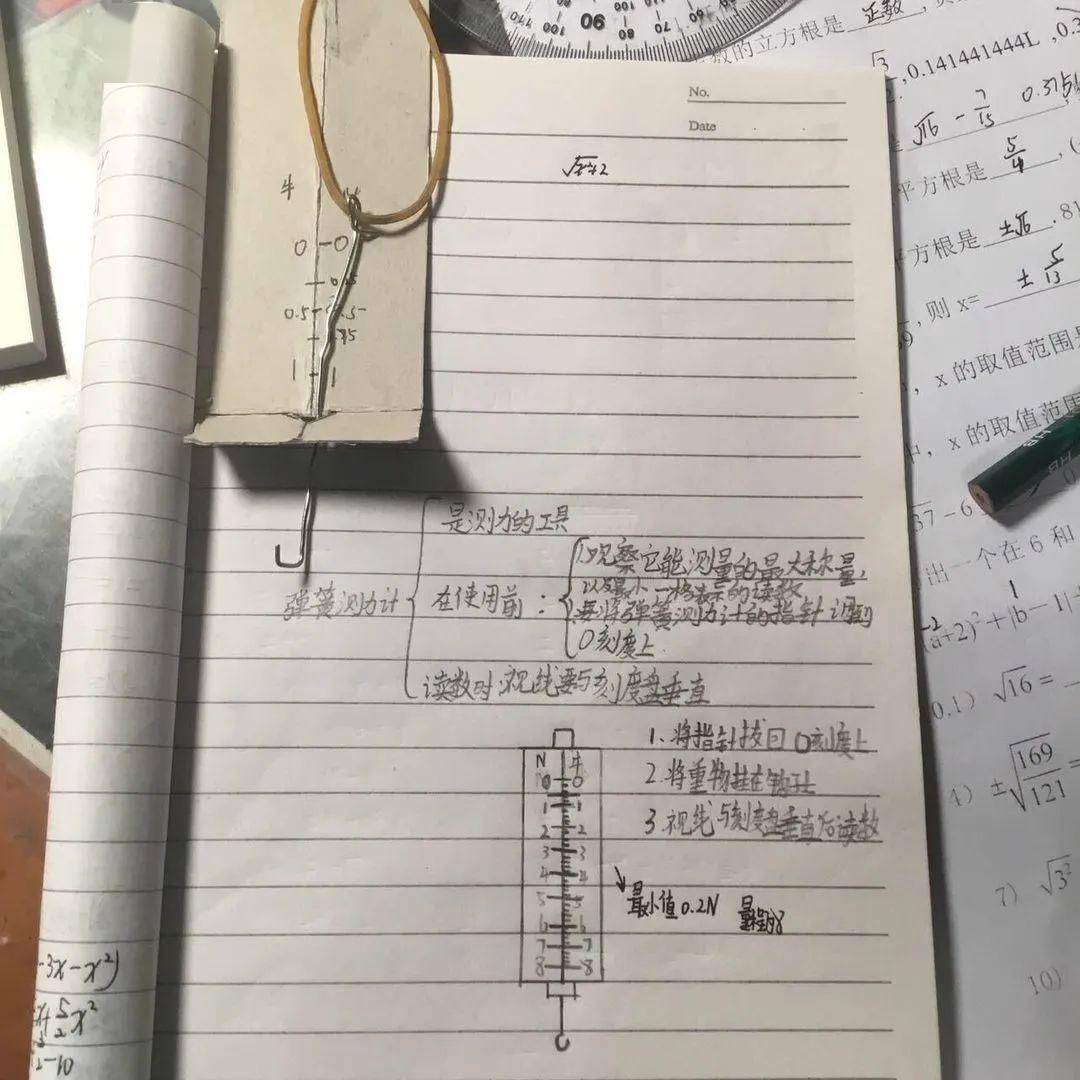 90
正数
数的立方根是
0.141441444L
√16 - 7/15 0.3
平方根是 5/4
平方根是 ±√6 .81
则 x= ± 5/13
x 的取值范围是
x 的取值范围
37 - 6
出一个在 6 和
(a+2)² + |b-1| +
0.1) √16 =
4) ±√169/121 =
7) √3²
10)
No.
Date
牛 N
0 0
0.5
1 1
是测力的工具
弹簧测力计 在使用前:
观察它能测量的最大称量,
以及最小一格表示的读数
要将弹簧测力计的指针调到
0刻度上
读数时:视线要与刻度盘垂直
1. 将指针拨回0刻度上
2. 将重物挂在钩上
3. 视线与刻度盘垂直后读数
N 牛
0 0
1 1
2 2
3 3
4 4
5 5
6 6
7 7
8 8
最小值0.2N
-3x-x²)
5/2x²
-10
HB